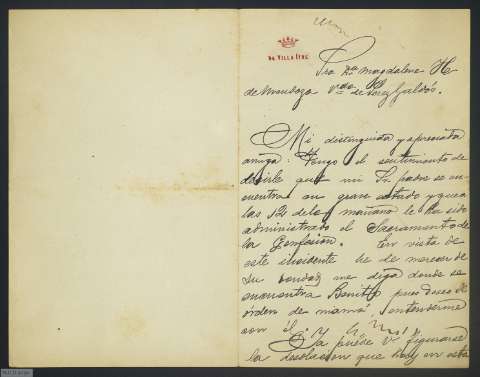 DE VILLA ITRE
Sra Dª Magdalena H
de Mendoza Vda de Perez Galdós.
Mi distinguida y apreciada
amiga: Tengo el sentimiento de
decirle que mi Sr. padre se en-
cuentra en grave estado y que a
las 12 de la mañana le ha sido
administrado el Sacramento de
la Confesion. En vista de
este incidente he de merecer de
su bondad me diga donde se
encuentra Benito, pues deseo de
órden de mamá, entenderme
con él.
Ya puede V. figurarse
la desolacion que hay en esta